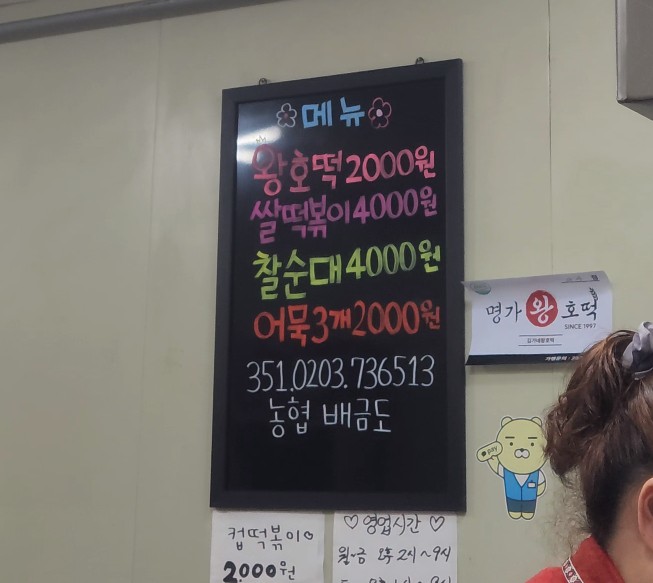 메뉴
왕호떡 2000원
쌀떡볶이 4000원
찰순대 4000원
어묵3개 2000원
351.0203.736513
농협 배금도
명가 왕 호떡
SINCE 1997
pay
컵떡볶이♡
2,000원
♡ 영업시간 ♡
월~금 오후 2시~9시